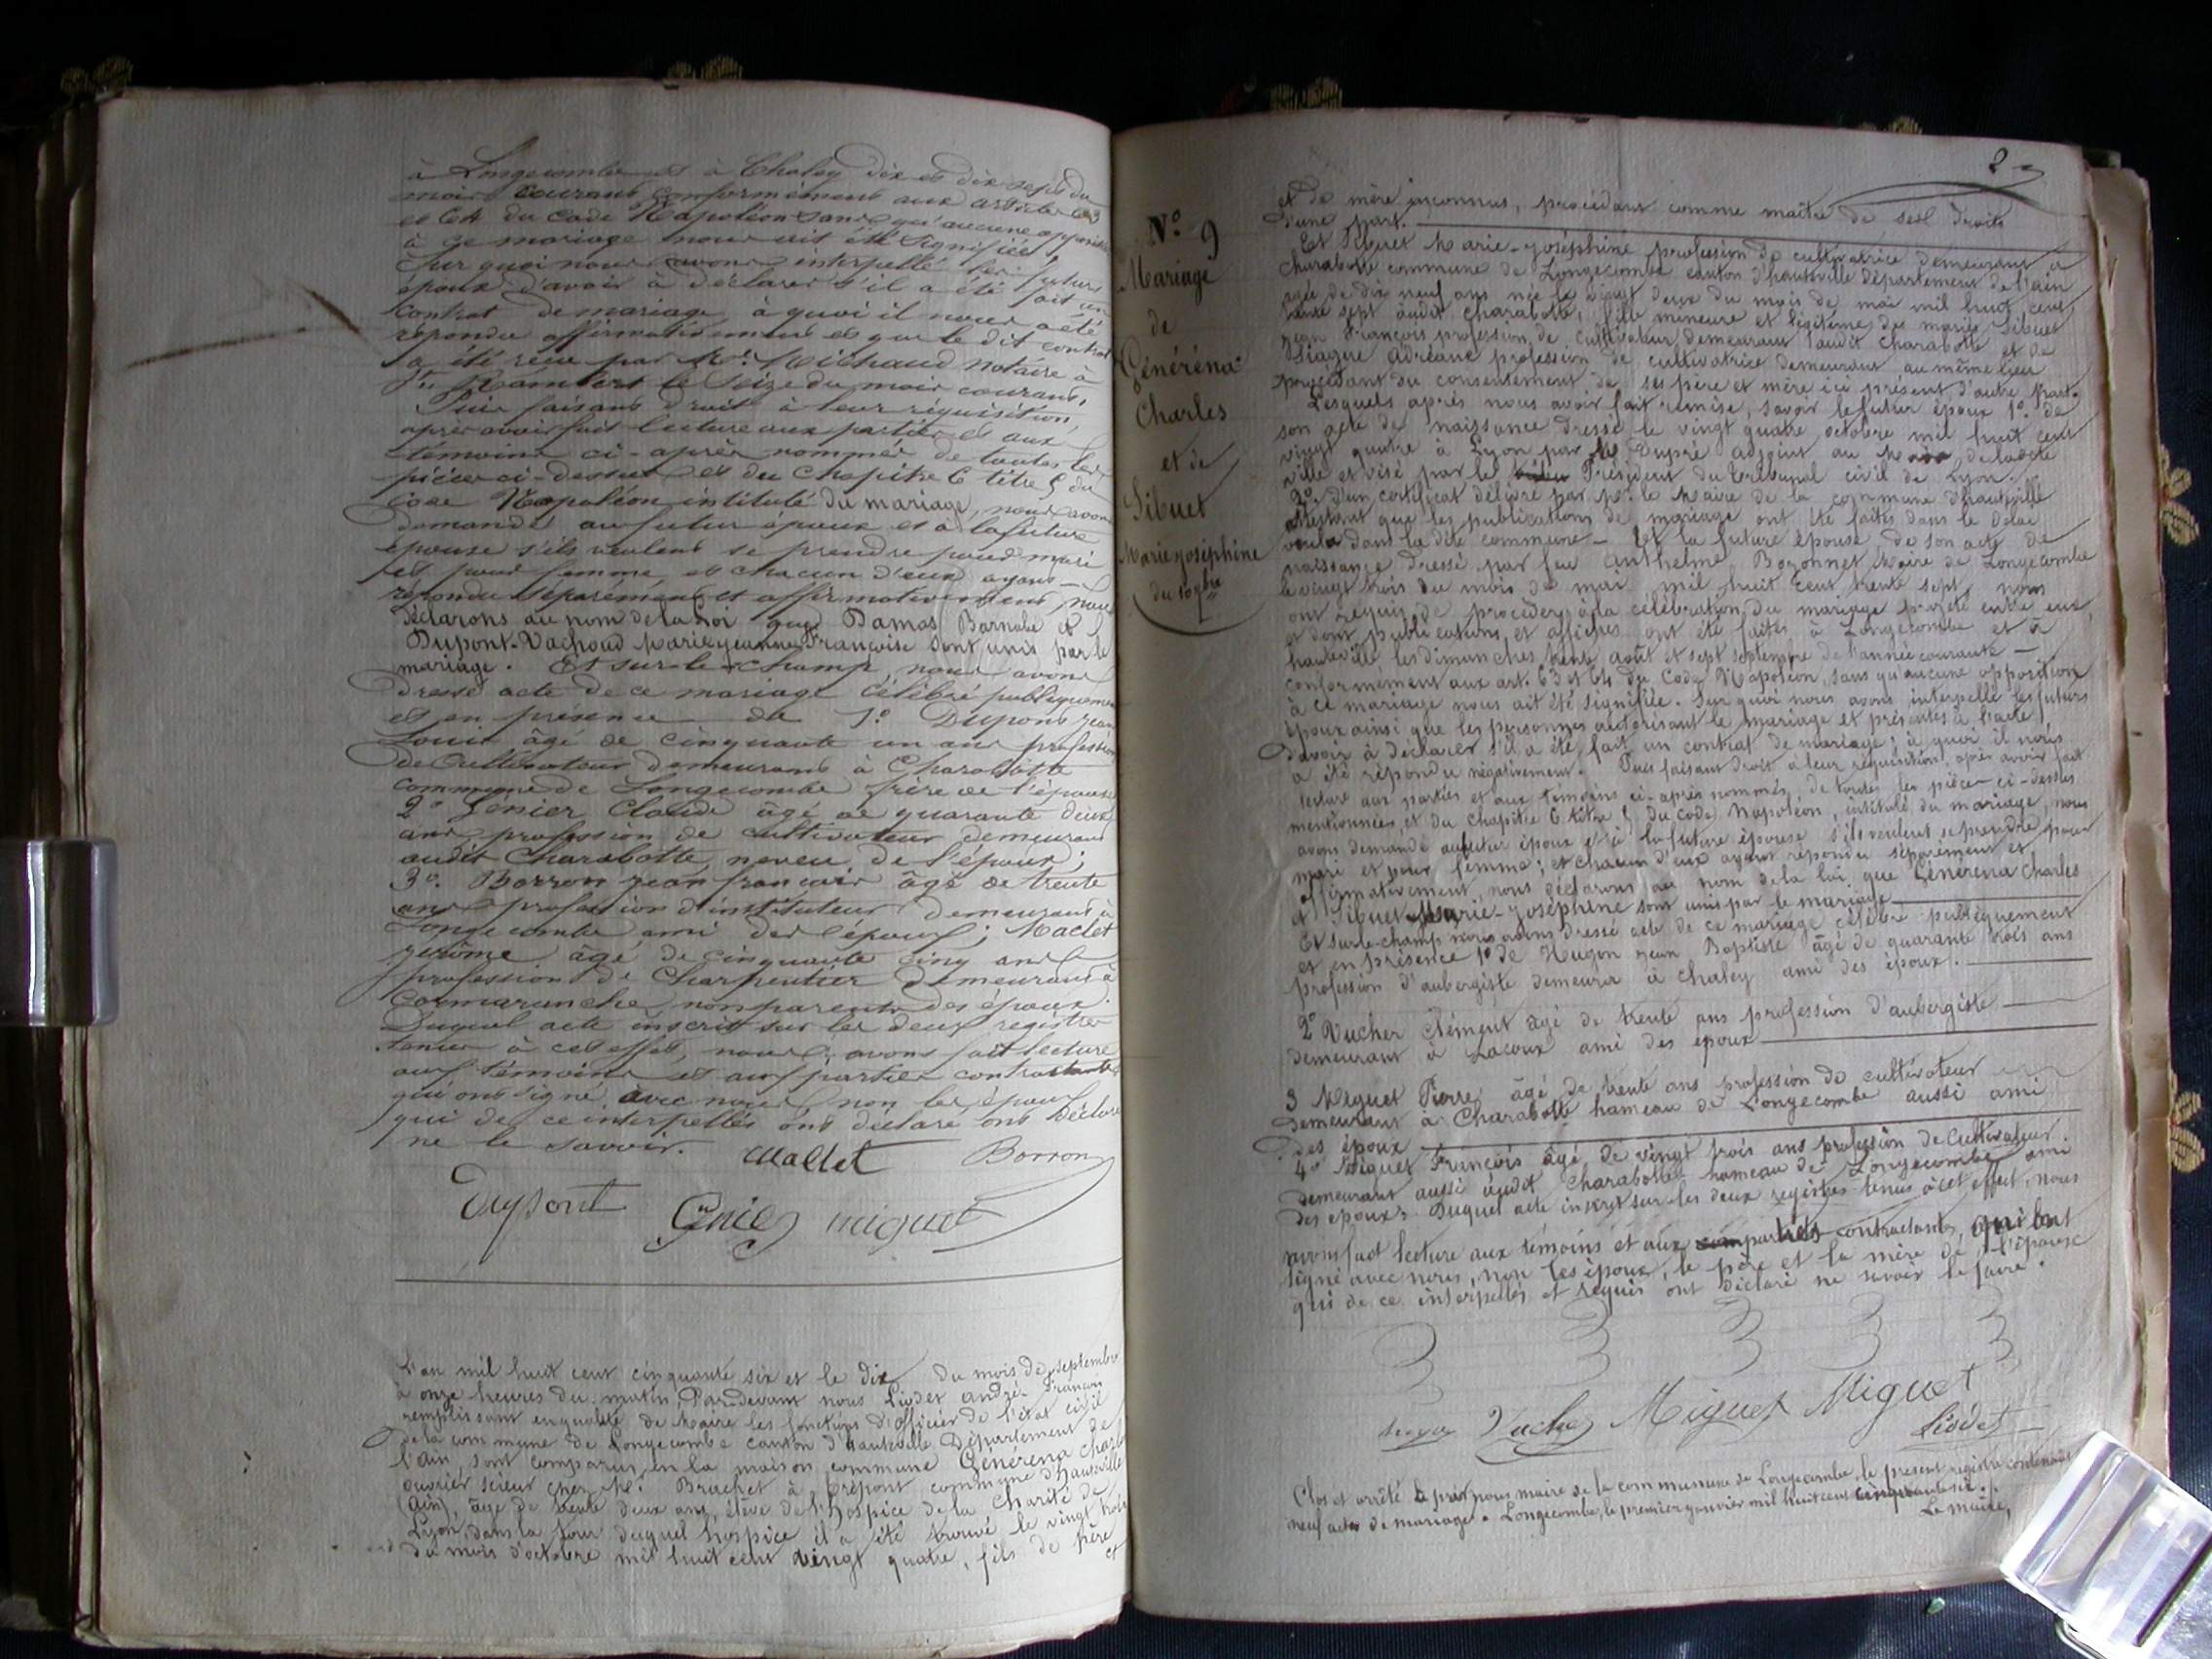 à Longecombe et à Chaley dix et dix sept du
mois courant conformément aux articles 63
et 64 du Code Napoléon sans qu'aucune opposition
à ce mariage nous ait été signifiée,
Sur quoi nous avons interpellé les futurs
époux d'avoir à déclarer s'il a été fait un
contrat de mariage, à quoi il nous a été
répondu affirmativement et que le dit contrat
a été reçu par Me. Michaud notaire à
St. Rambert le seize du mois courant,
Puis faisant droit à leur réquisition,
après avoir fait lecture aux parties et aux
témoins ci-après nommés de toutes les
pièces ci-dessus et du Chapitre 6 titre 5 du
Code Napoléon intitulé du mariage, nous avons
demandé au futur époux et à la future
épouse s'ils veulent se prendre pour mari
et pour femme et chacun d'eux ayant
répondu séparément et affirmativement, nous
Déclarons au nom de la Loi que Damas Barnabé et
Dupont-Vachoud Marie jeanne Françoise sont unis par le
mariage. Et sur-le-champ nous avons
dressé acte de ce mariage célébré publiquement
et en présence de 1º Dupont jean
Louis âgé de cinquante un ans profession
de Cultivateur demeurant à Charabotte
commune de Longecombe frère de l'épouse
2º Genier Claude âgé de quarante deux
ans, profession de cultivateur demeurant
audit Charabotte, neveu de l'époux;
3º. Borron jean françois âgé de trente
ans profession d'instituteur demeurant à
Longecombe ami des époux; Maclet
jérôme âgé de cinquante cinq ans
profession de Charpentier demeurant à
Cormaranche, non parents des époux.
Duquel acte inscrit sur les deux registres
tenus à cet effet, nous avons fait lecture
aux témoins et aux parties contractantes
qui ont signé avec nous non les époux
qui de ce interpellés ont déclaré ont déclaré
ne le savoir.
Mallet Borron
Dupont Genier miguet
L'an mil huit cent cinquante six et le dix du mois de septembre
à onze heures du matin, Par-devant nous Liodet andré François
remplissant en qualité de Maire les fonctions d'officier de l'état civil
de la commune de Longecombe canton d'hauteville Département de
l'ain, sont comparus en la maison commune Généréna Charles
ouvrier scieur chez Mr. Brachet à Trépont commune d'hauteville
(ain), âgé de trente deux ans, élève de l'hospice de la Charité de
Lyon, dans la tour duquel hospice il a été trouvé le vingt trois
du mois d'octobre mil huit cent vingt quatre, fils de père
et
Nº 9
Mariage
de
Généréna
Charles
et de
Sibuet
Marie joséphine
du 10 7bre
et de mère inconnus, procédant comme maître de ses droits
d'une part.
Et Sibuet Marie-joséphine profession de cultivatrice demeurant à
Charabotte commune de Longecombe canton d'hauteville département de l'ain
agée de dix neuf ans née le vingt deux du mois de mai mil huit cent
trente sept audit Charabotte, fille mineure et légitime des mariés Sibuet
jean François profession de cultivateur demeurant audit Charabotte et de
adréane profession de cultivatrice demeurant au même lieu
procédant du consentement de ses père et mère ici présent d'autre part.
Lesquels après nous avoir fait remise, savoir le futur époux 1º. de
son acte de naissance dressé le vingt quatre octobre mil huit cent
vingt quatre à Lyon par Mr Dupré adjoint au Maire de ladite
ville et visé par le Président du tribunal civil de Lyon.
2º. d'un certificat délivré par Mr. le Maire de la commune d'hauteville
attestant que les publications de mariage ont été faites dans le délai
voulu dans la dite commune - Et la future épouse de son acte de
naissance dressé par feu anthelme Bozonnet Maire de Longecombe
le vingt trois du mois de mai mil huit cent trente sept, nous
ont requis de procéder à la célébration du mariage projeté entre eux
et dont publications et affiches ont été faites à Longecombe et à
hauteville les dimanches trente août et sept septembre de l'année courante —
conformément aux art. 63 et 64 du Code Napoléon, sans qu'aucune opposition
à ce mariage nous ait été signifiée. Sur quoi nous avons interpellé les futurs
époux ainsi que les personnes autorisant le mariage et présentes à l'acte,
d'avoir à déclarer s'il a été fait un contrat de mariage; à quoi il nous
a été répondu négativement. Puis faisant droit à leur réquisition, après avoir fait
lecture aux parties et aux témoins ci-après nommés, de toutes les pièces ci-dessus
mentionnées, et du Chapitre 6 titre 5 du Code Napoléon, intitulé du mariage, nous
avons demandé au futur époux et à la future épouse s'ils veulent se prendre pour
mari et pour femme; et chacun d'eux ayant répondu séparément et
affirmativement nous déclarons au nom de la loi que Généréna Charles
et Sibuet Marie-Joséphine sont unis par le mariage
Et sur le-champ nous avons dressé acte de ce mariage célébré publiquement
et en présence 1º de Hugon jean Baptiste âgé de quarante trois ans
profession d'aubergiste demeurer à Chaley ami des époux.
2º Vucher Clément âgé de trente ans profession d'aubergiste
demeurant à Lacoux ami des époux
3 Miguet Pierre âgé de trente ans profession de cultivateur
demeurant à Charabotte hameau de Longecombe aussi ami
des époux
4º Miguet François âgé de vingt trois ans profession de Cultivateur
demeurant aussi audit Charabotte hameau de Longecombe ami
des époux. Duquel acte inscrit sur les deux registres tenus à cet effet, nous
avons fait lecture aux témoins et aux parties contractantes, qui ont
signé avec nous, non les époux, le père et la mère de l'épouse
qui de ce interpellés et requis ont déclaré ne savoir le faire.
Vucher Miguet Miguet
Liodet
Clos et arrêté par nous maire de la commune de Longecombe, le présent registre contenant
neuf actes de mariage. Longecombe, le premier janvier mil huit cent cinquante six.
Le maire,